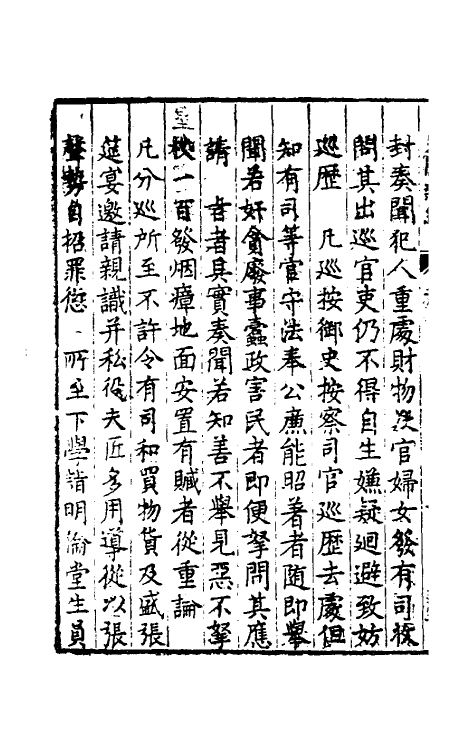 封奏聞犯人重處財物没官婦女發有司採
問其出巡官吏仍不得自生嫌疑廻避致妨
巡歷 凡巡按御史按察司官巡歷去處但
知有司等官守法奉公廉能昭著者随即舉
聞若奸貪廢事蠧政害民者即便拏問其應
請 旨者具實奏聞若知善不舉見惡不拏
杖一百發烟瘴地面安置有贓者從重論
凡分巡所至不許令有司和買物貨及盛張
筵宴邀請親識并私役夫匠多用導從以張
聲勢自招罪愆 所至下學詣明倫堂生員